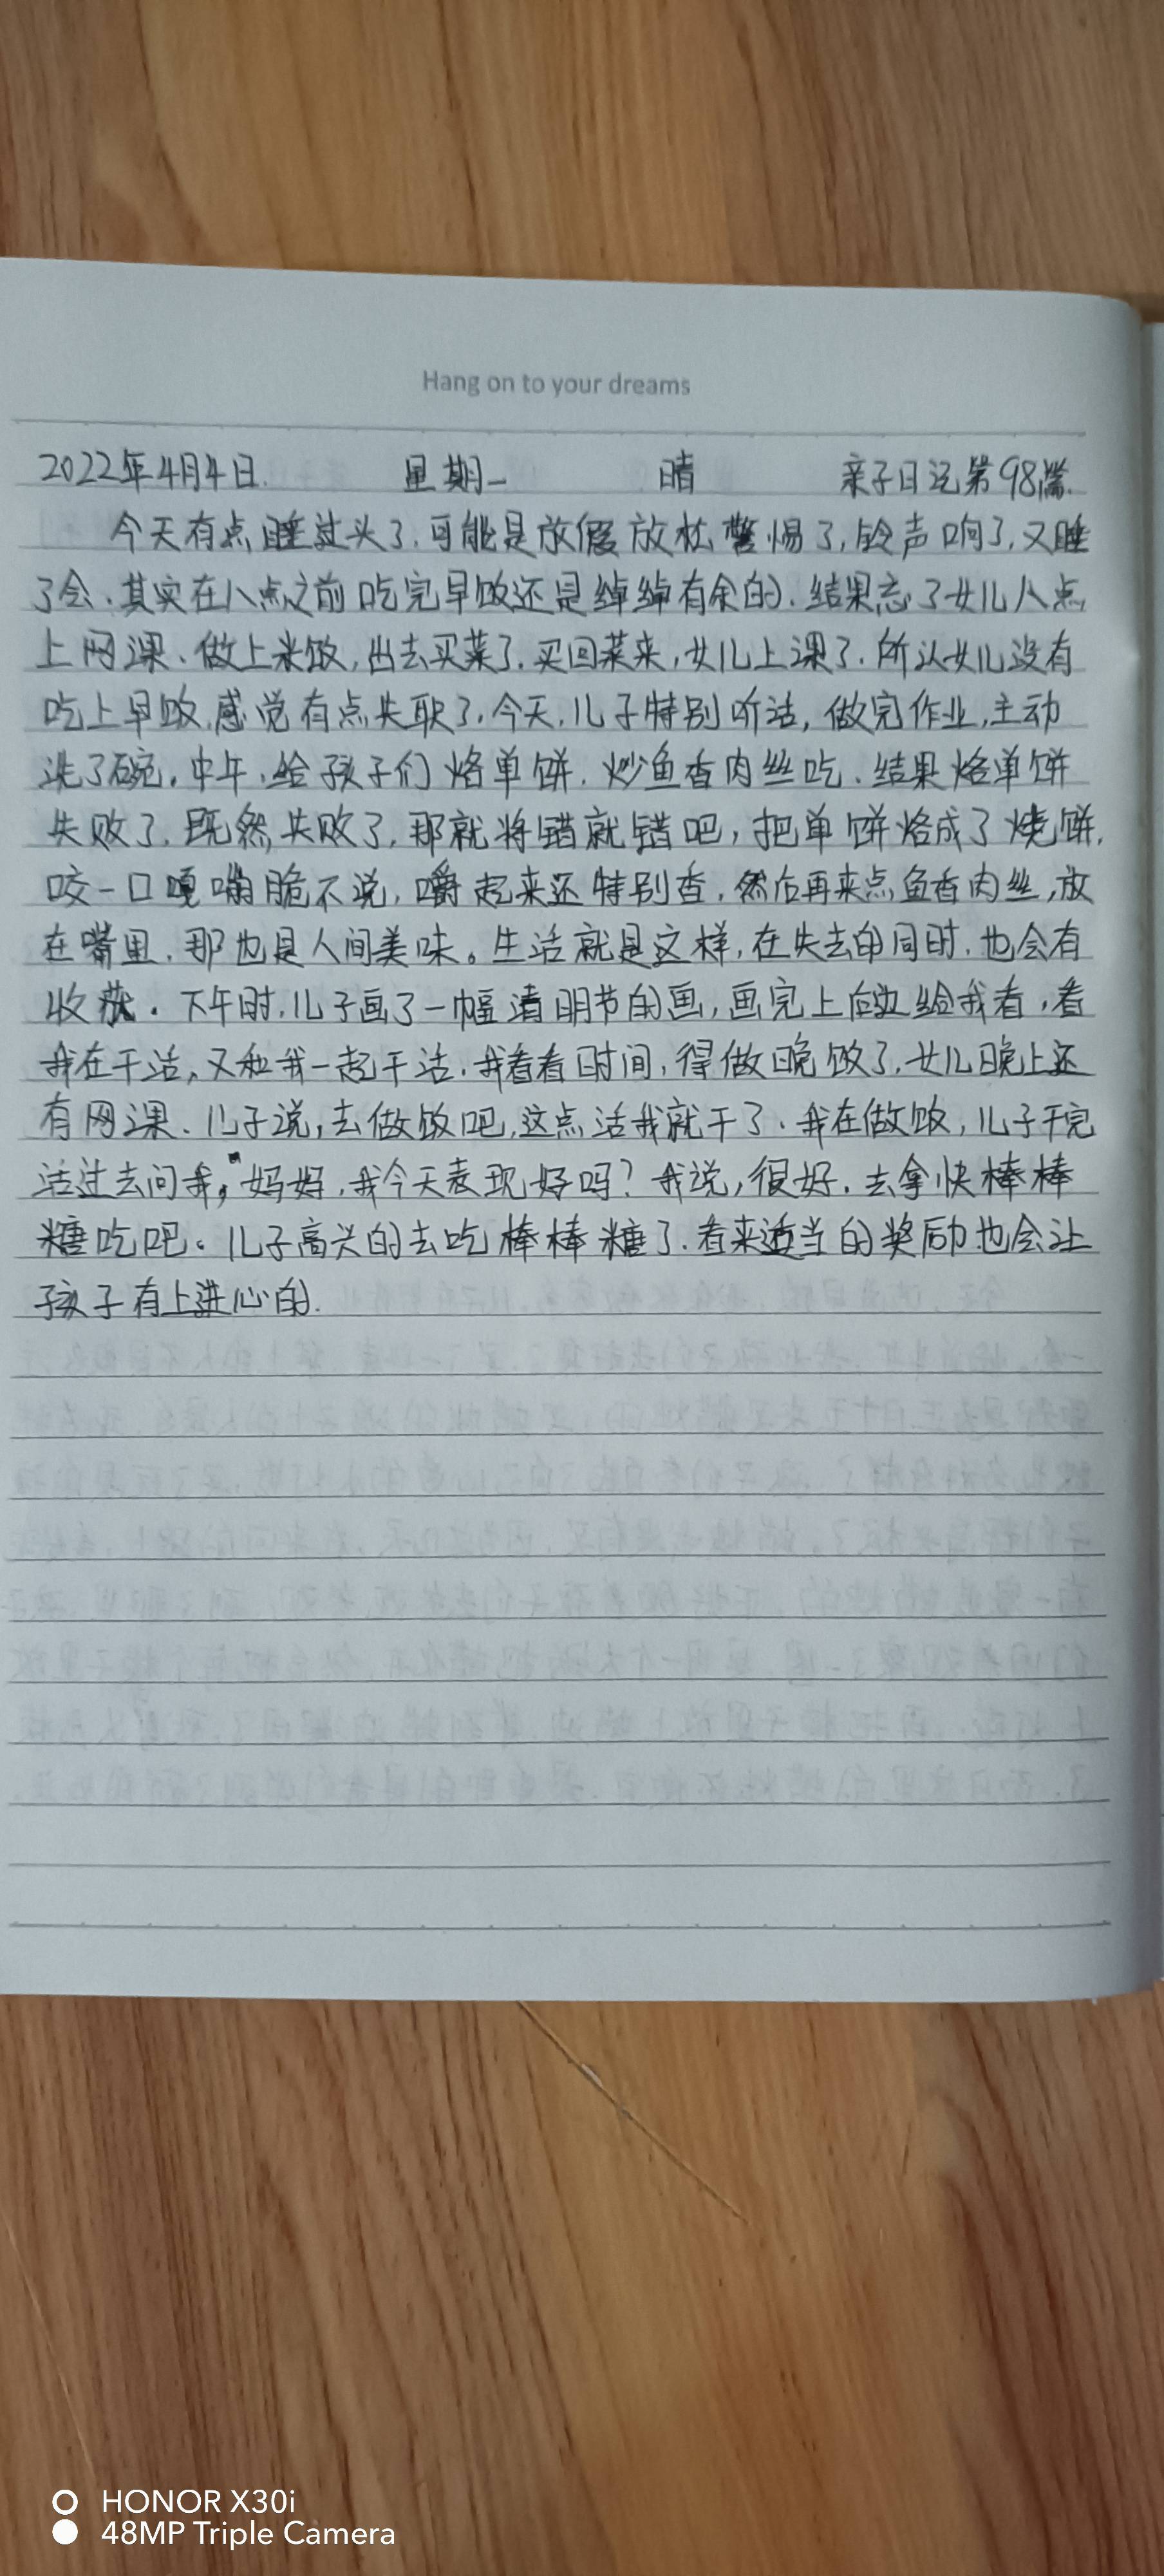 Hang on to your dreams
2022年4月4日. 星期一 晴 亲子日记第98篇.
今天有点睡过头了.可能是放假放松警惕了,铃声响了.又睡
了会.其实在八点之前吃完早饭还是绰绰有余的.结果忘了女儿八点
上网课、做上米饭,出去买菜了.买回菜来,女儿上课了.所认女儿没有
吃上早饭.感觉有点失职了.今天,儿子特别听话,做完作业,主动
洗了碗.中午,给孩子们烙单饼.炒鱼香肉丝吃.结果烙单饼
失败了.既然失败了,那就将错就错吧,把单饼烙成了烧饼,
咬一口嘎嘣脆不说,嚼起来还特别香,然后再来点鱼香肉丝,放
在嘴里,那也是人间美味。生活就是这样,在失去的同时,也会有
收获.下午时,儿子画了一幅清明节的画,画完上后边给我看,看
我在干活,又和我一起干活.我看看时间,得做晚饭了,女儿晚上还
有网课、儿子说,去做饭吧,这点活我就干了.我在做饭,儿子干完
活过去问我,"妈妈,我今天表现好吗?我说,很好.去拿快棒棒
糖吃吧。儿子高兴的去吃棒棒糖了.看来适当的奖励也会让
孩子有上进心的.
HONOR X30i
48MP Triple Camera